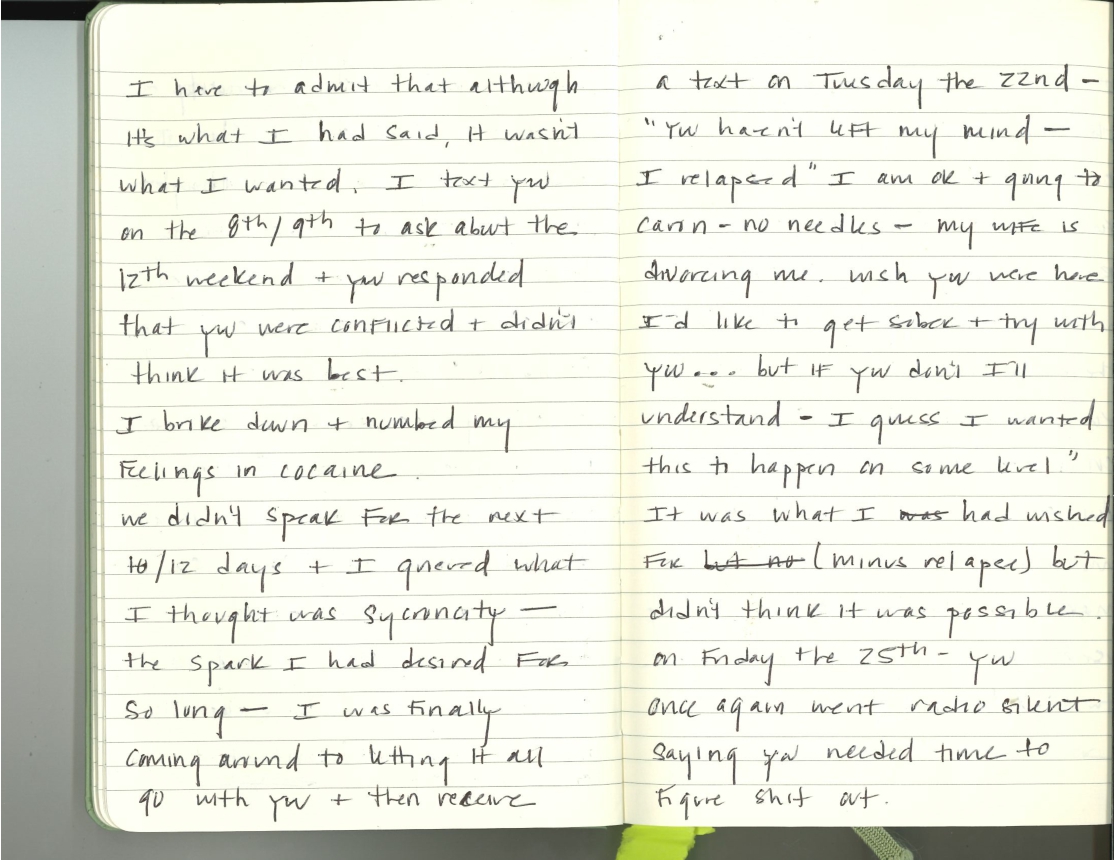 I have to admit that although
it's what I had said, it wasn't
what I wanted. I text you
on the 8th/9th to ask about the
12th weekend + you responded
that you were conflicted + didn't
think it was best.
I broke down + numbed my
feelings in cocaine.
we didn't speak for the next
10/12 days + I grieved what
I thought was sycroncity —
the spark I had desired for
so long — I was finally
coming around to letting it all
go with you + then receive
a text on Tuesday the 22nd -
"You haven't left my mind —
I relapsed" I am ok + going to
caron - no needles - my wife is
divorcing me. wish you were here
I'd like to get sober + try with
you... but if you don't I'll
understand - I guess I wanted
this to happen on some level."
It was what I was had wished
for but no (minus relapse) but
didn't think it was possible.
on Friday the 25th - you
once again went radio silent
saying you needed time to
figure shit out.